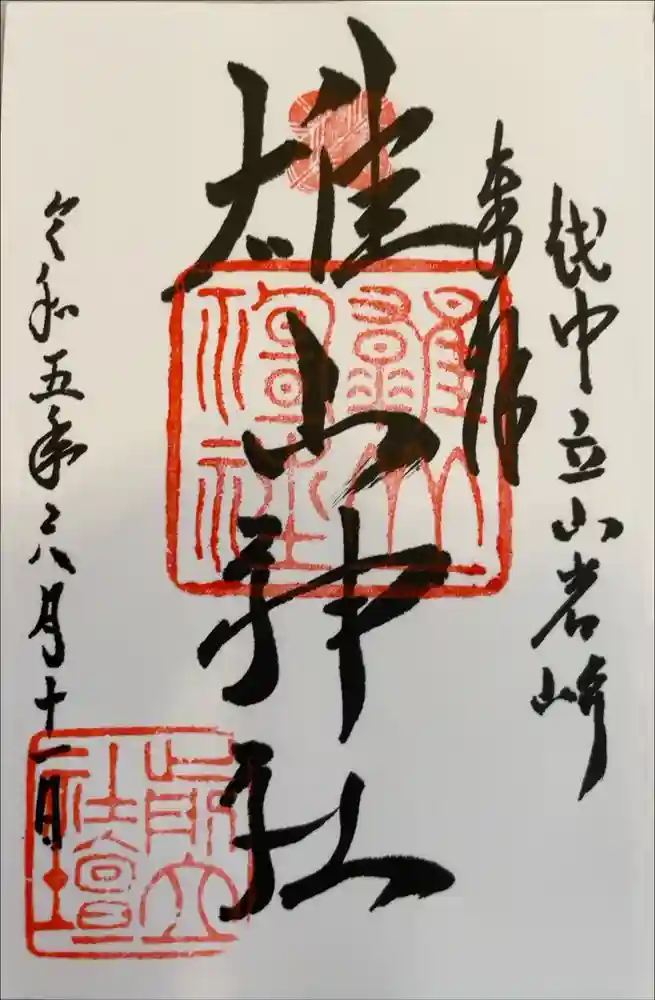 越中立山岩峅
奉拝
雄山神社
令和五年六月十一日
雄山神社